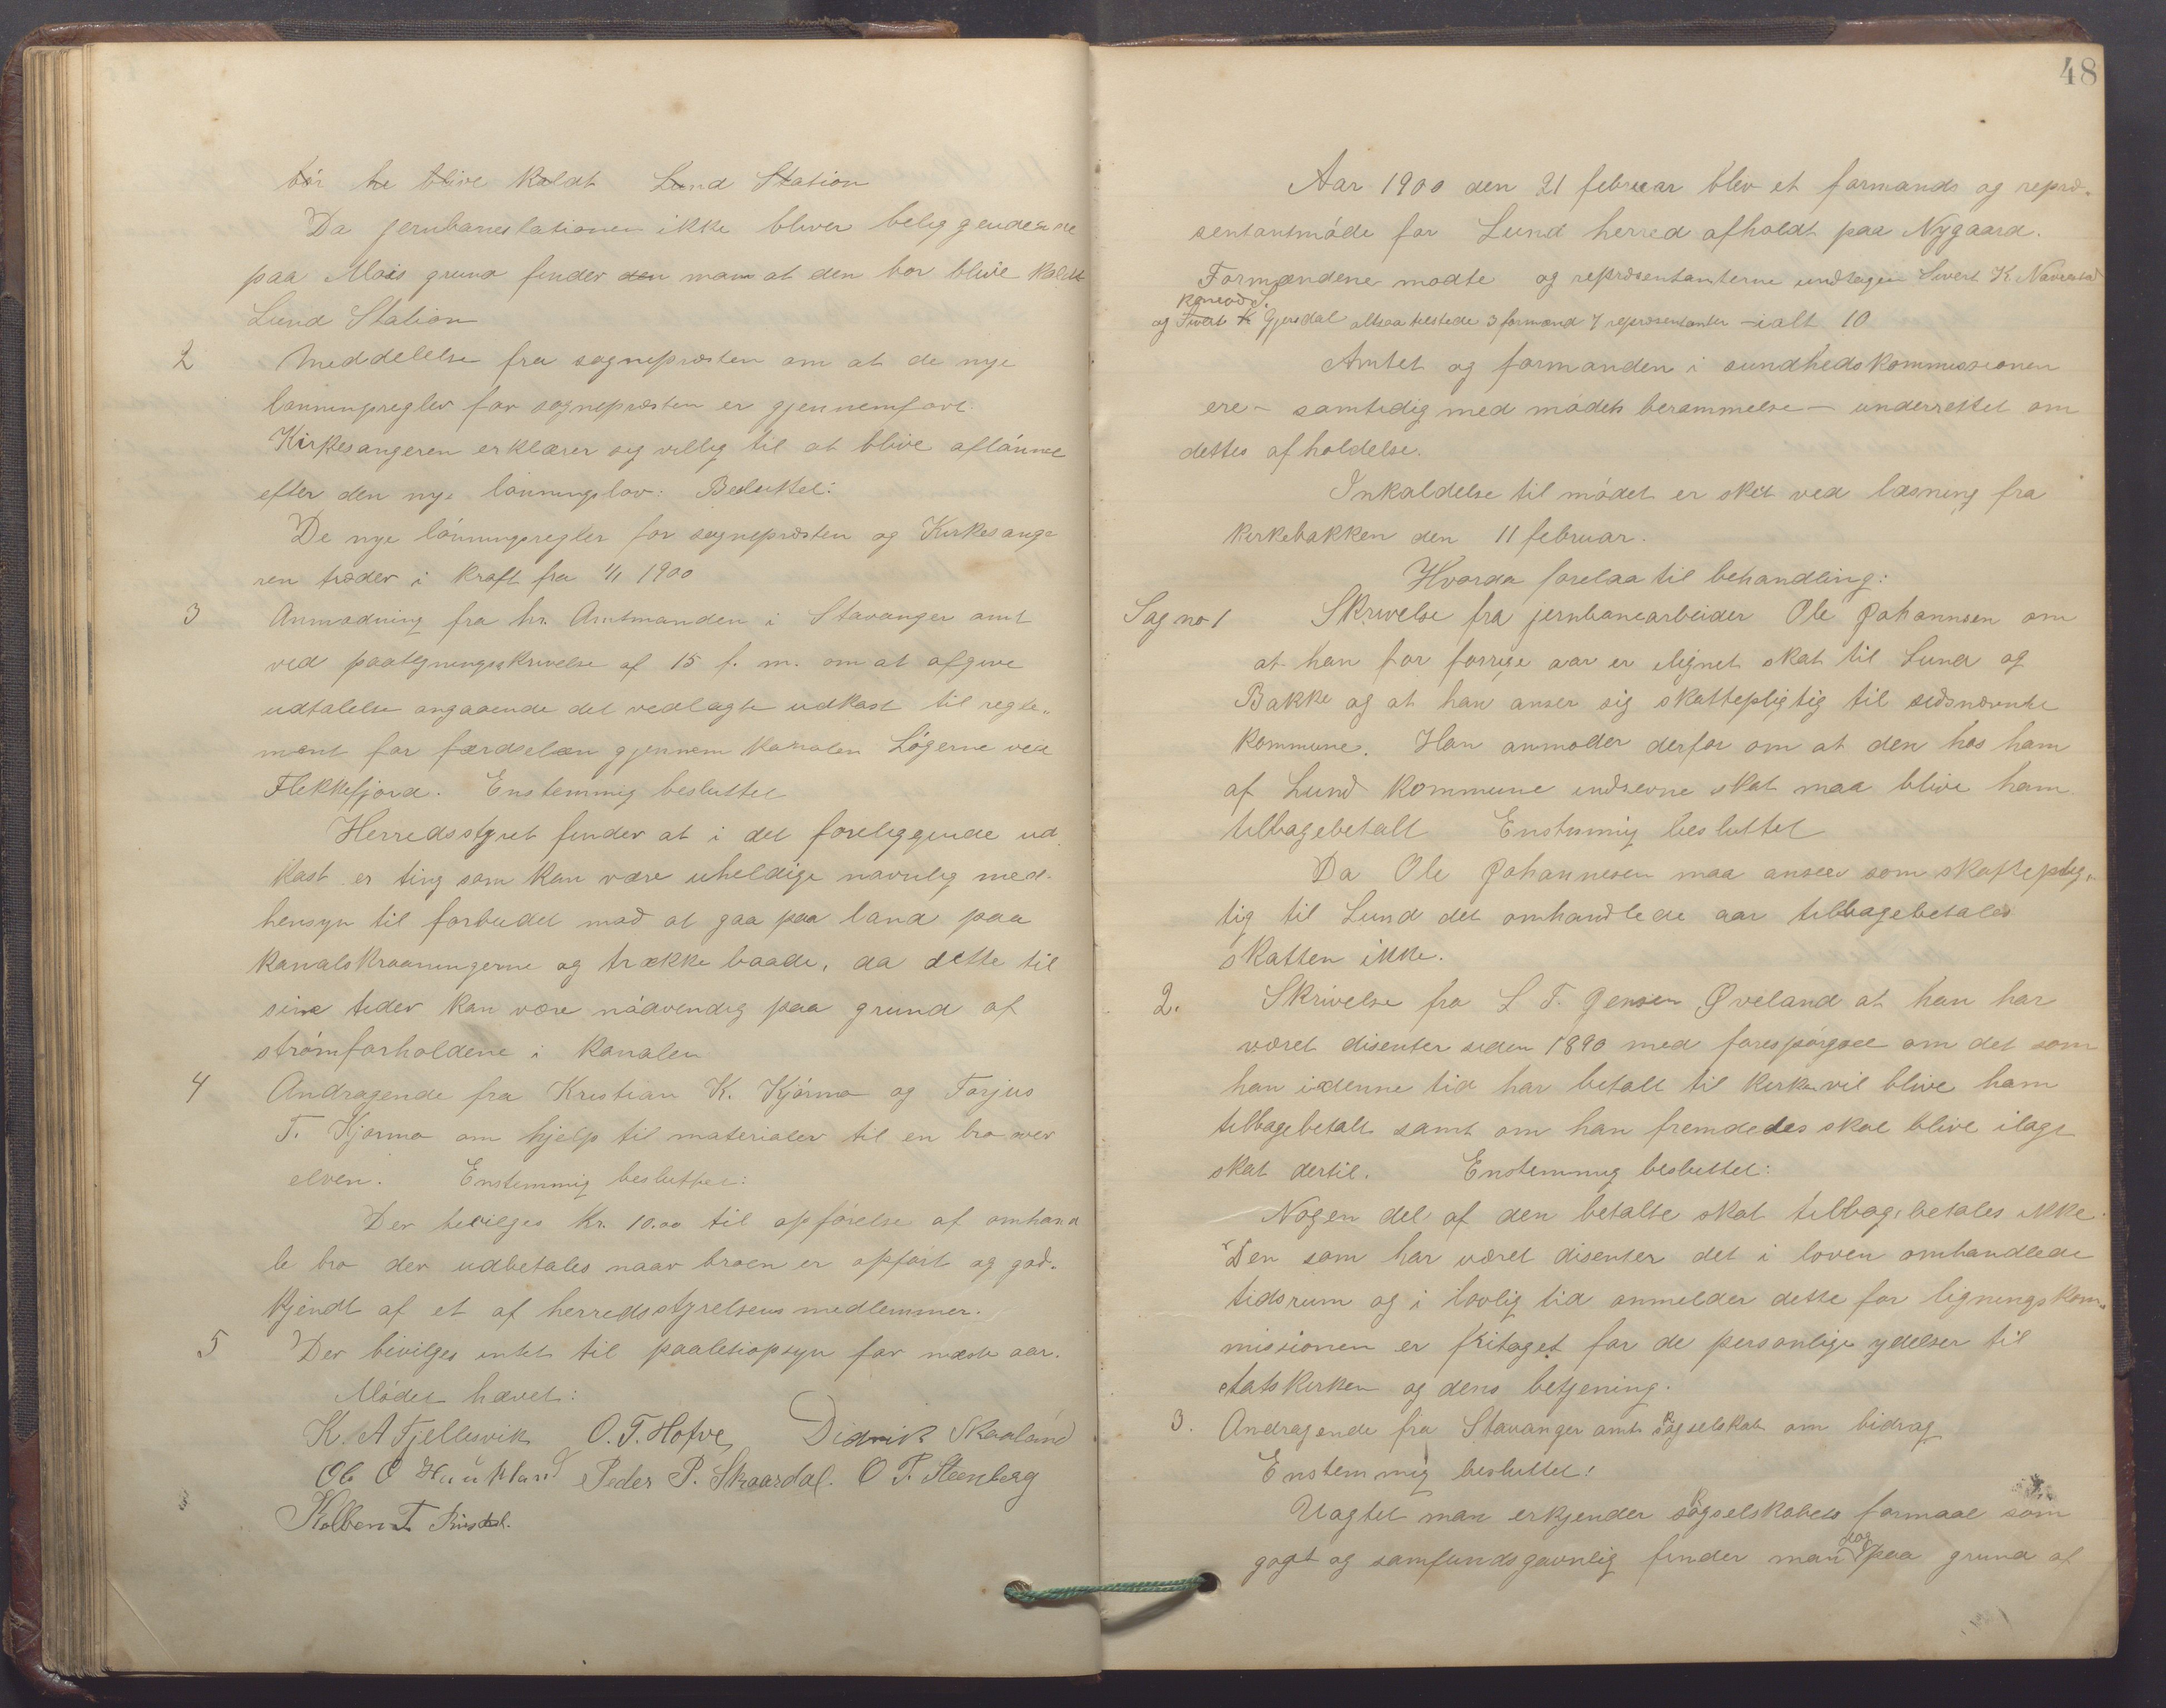 bör he blive kaldt Lund Station
Da jernbanestationen ikke bliver beliggende
paa Mois grund finder den man at den bor blive kaldt
Lund Station
2 Meddelelse fra sognepræsten om at de nye
lønningsregler for sognepræsten er gjennemført.
Kirkesangeren erklærer sig villig til at blive aflønnet
efter den nye lønningslov: Besluttet:
De nye lønningsregler for sognepræsten og Kirkesange
ren træder i kraft fra 1/1 1900
3 Anmodning fra hr. Amtmanden i Stavanger amt
ved paategningsskrivelse af 15 f. m. om at afgive
udtalelse angaaende det vedlagte udkast til regle„
ment for færdselen gjennem kanalen Løgerne ved
Flekkefjord. Enstemmig besluttet
Herredsstyret finder at i det foreliggende ud
kast er ting som kan være uheldige navnlig med
hensyn til forbudet mod at gaa paa land paa
kanalskraaningerne og trække baade, da dette til
sine tider kan være nødvendig paa grund af
strømforholdene i kanalen
4 Andragende fra Kristian K. Kjørmo og Torjus
T. Kjørmo om hjelp til materialer til en bro over
elven. Enstemmig besluttet:
Der bevilges Kr. 10.00 til opførelse af omhand
le bro der udbetales naar broen er opført og god-
kjendt af et af herredsstyrelsens medlemmer.
5 Der bivilges intet til paaletiopsyn for næste aar.
Mødet hævet:
K. A Fjellesvik O. T. Hofve Didrik Skaaland
Ole O Haukland Peder P. Skaardal. O T. Steenberg
Kolben T
48
Aar 1900 den 21 februar blev et formands og repræ-
sentantmøde for Lund herred afholdt paa Nygaard.
Formændene mødte og repræsentanterne undtagen Sivert K. Naverstad
Konrad S.
og Sivert K Gjersdal altsaa tilstede 3 formænd 7 repræsentanter – ialt 10
Amtet og formanden i sundhedskommissionen
ere – samtidig med mødets berammelse – underrettet om
dettes afholdelse.
Inkaldelse til mødet er skét ved læsning fra
kirkebakken den 11 februar.
Hvorda forelaa til behandling:
Sag no 1 Skrivelse fra jernbanearbeider Ole Johannsen om
at han for forrige aar er ilignet skat til Lund og
Bakke og at han anser sig skattepligtig til sidsnævnte
kommune. Han anmoder derfor om at den hos ham
af Lund kommune indrevne skat maa blive ham
tilbagebetalt Enstemmig besluttet
Da Ole Johannesen maa ansees som skatteplig„
tig til Lund det omhandlede aar tilbagebetales
skatten ikke.
2. Skrivelse fra L T. Jensen Øveland at han har
været disenter siden 1890 med forespørgsel om det som
han i denne tid har betalt til kirken vil blive ham
tilbagebetalt samt om han fremdeles skal blive ilagt
skat dertil. Enstemmig besluttet:
Nogen del af den betalte skat tilbagebetales ikke.
Den som har været disenter det i loven omhandlede
tidsrum og i lovlig tid anmelder dette for ligningskom„
missionen er fritaget for de personlige ydelser til
statskirken og dens betjening.
3. Andragende fra Stavanger amts skogselskab om bidrag
Enstemmig besluttet:
Uagtet man erkjender skogselskabets formaal som
dog
godt og samfundsgavnlig finder man paa grund af